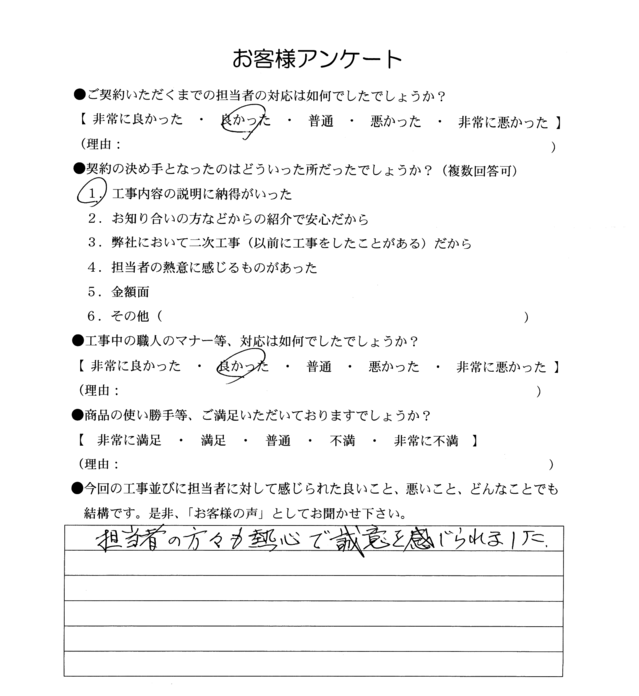 お客様アンケート
●ご契約いただくまでの担当者の対応は如何でしたでしょうか？
【 非常に良かった ・ 良かった ・ 普通 ・ 悪かった ・ 非常に悪かった 】
（理由： ）
●契約の決め手となったのはどういった所だったでしょうか？（複数回答可）
１．工事内容の説明に納得がいった
２．お知り合いの方などからの紹介で安心だから
３．弊社において二次工事（以前に工事をしたことがある）だから
４．担当者の熱意に感じるものがあった
５．金額面
６．その他（ ）
●工事中の職人のマナー等、対応は如何でしたでしょうか？
【 非常に良かった ・ 良かった ・ 普通 ・ 悪かった ・ 非常に悪かった 】
（理由： ）
●商品の使い勝手等、ご満足いただいておりますでしょうか？
【 非常に満足 ・ 満足 ・ 普通 ・ 不満 ・ 非常に不満 】
（理由： ）
●今回の工事並びに担当者に対して感じられた良いこと、悪いこと、どんなことでも
結構です。是非、「お客様の声」としてお聞かせ下さい。
担当者の方々も熱心で誠意を感じられました.